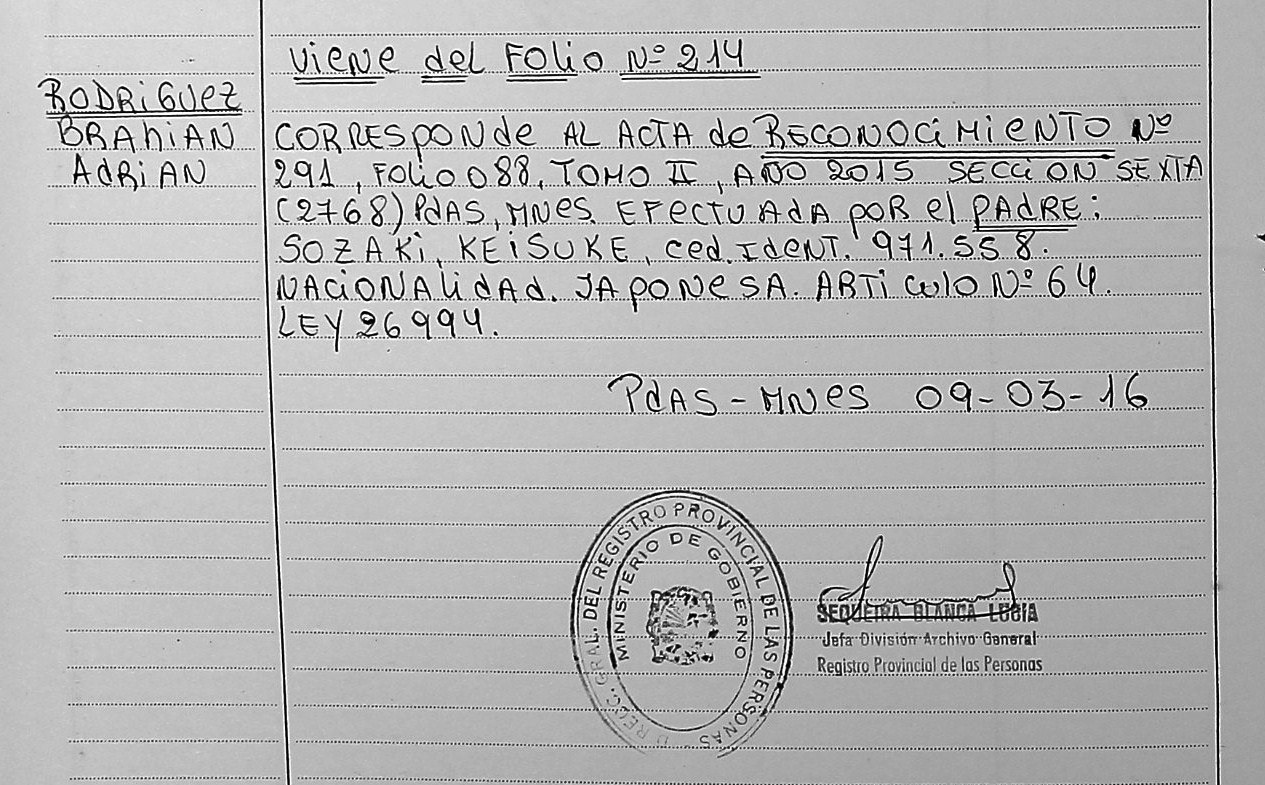 Viene del Folio Nº 214
RODRIGUEZ
BRAHIAN
ADRIAN
CORRESPONde AL ACTA de RECONOCIMIENTO Nº
291, FOLIO 088, TOMO II, AÑO 2015 SECCION SEXTA
(2768) PdAS, MNES. EFECTUADA POR el PADRE:
SOZAKI, KEISUKE, Ced. IdENT. 971.558.
NACIONALIDAD. JAPONESA. ARTICULO Nº 64.
LEY 26994.
PdAS - MNES 09-03-16
GRAL. DEL REGISTRO PROVINCIAL DE LAS PERSONAS
MINISTERIO DE GOBIERNO
SEQUEIRA BLANCA LUCIA
Jefa División Archivo General
Registro Provincial de las Personas